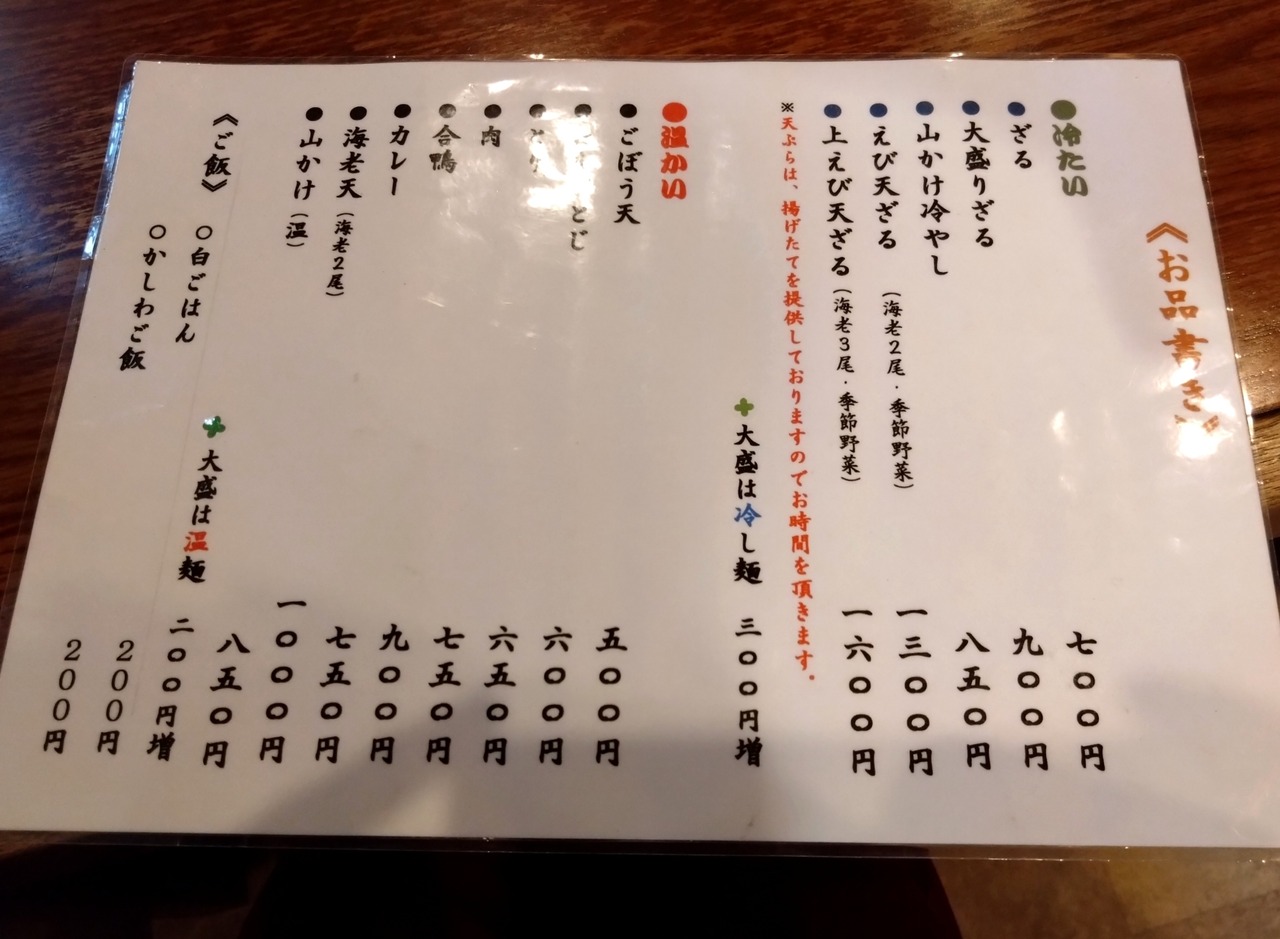 《お品書き》
●冷たい
●ざる 七〇〇円
●大盛りざる 九〇〇円
●山かけ冷やし 八五〇円
●えび天ざる（海老２尾・季節野菜） 一三〇〇円
●上えび天ざる（海老３尾・季節野菜） 一六〇〇円
※天ぷらは、揚げたてを提供しておりますのでお時間を頂きます。
大盛は冷し麺 三〇〇円増
●温かい
●ごぼう天 五〇〇円
● とじ 六〇〇円
● 六五〇円
●肉 七五〇円
●合鴨 九〇〇円
●カレー 七五〇円
●海老天（海老２尾） 一〇〇〇円
●山かけ（温） 八五〇円
大盛は温麺 二〇〇円増
《ご飯》
○白ごはん ２００円
○かしわご飯 ２００円